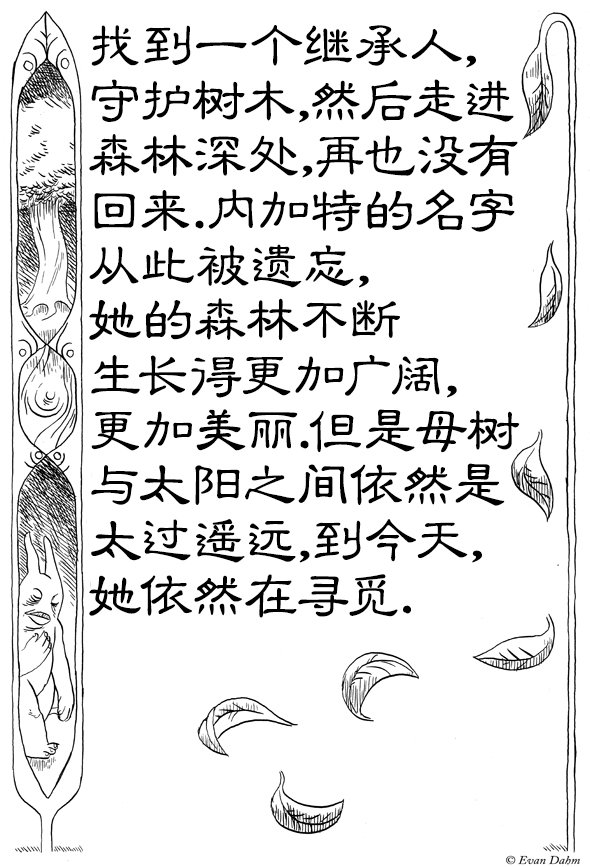 找到一个继承人,
守护树木,然后走进
森林深处,再也没有
回来.内加特的名字
从此被遗忘,
她的森林不断
生长得更加广阔,
更加美丽.但是母树
与太阳之间依然是
太过遥远,到今天,
她依然在寻觅.
© Evan Dahm